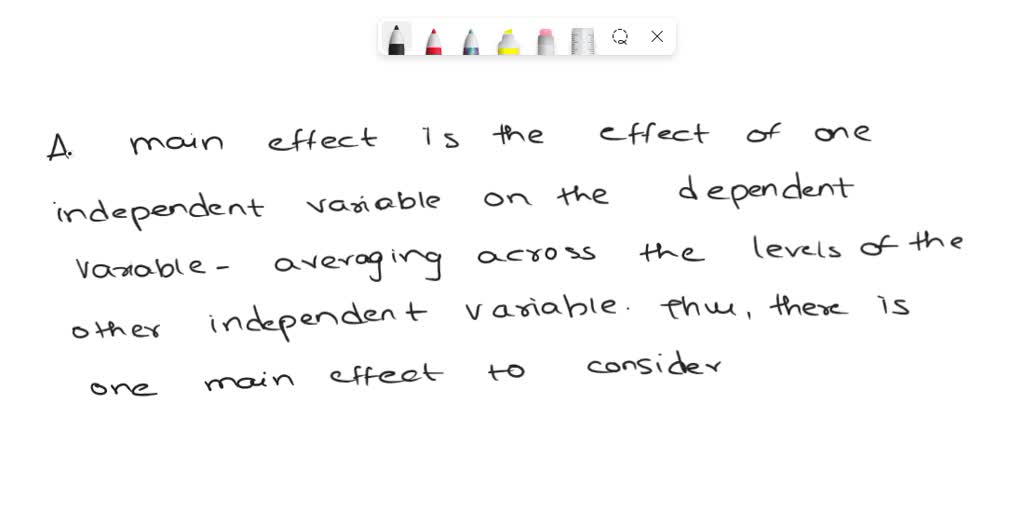 A main effect is the effect of one
independent variable on the dependent
variable - averaging across the levels of the
other independent variable. Thus, there is
one main effect to consider